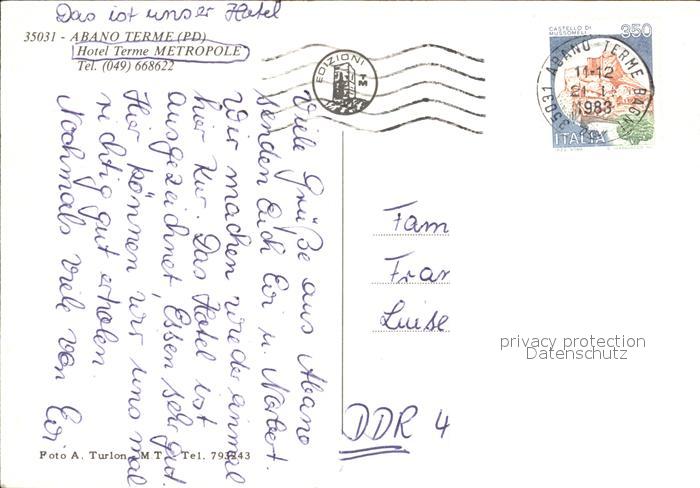 Das ist unser Hotel
35031 - ABANO TERME (PD)
Hotel Terme METROPOLE
Tel. (049) 668622
EDIZIONI
TM
CASTELLO DI
MUSSOMELI
350
35031 ABANO TERME BAGNI
11-12
1983
ITALIA
Viele Grüße aus Abano
senden Euch Evi u. Norbert.
Wir machen wieder einmal
hier Kur. Das Hotel ist
ausgezeichnet, Essen sehr gut.
Hier können wir uns mal
richtig gut erholen.
Nochmals viele von Evi
Fam
Fran
Luise
DDR 4
privacy protection
Datenschutz
Foto A. Turlon M T Tel. 793243